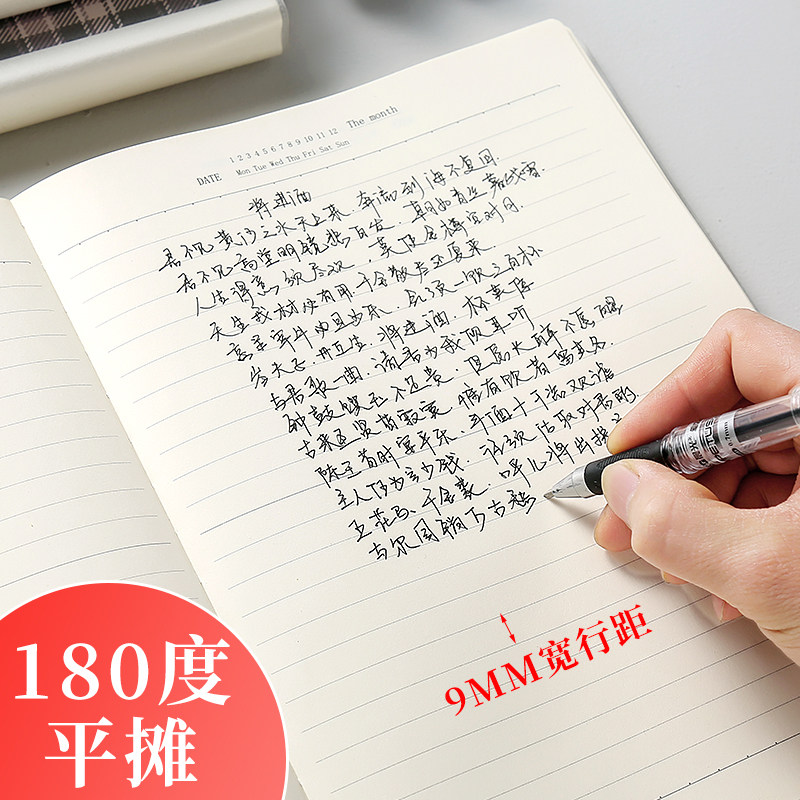 The month
1 2 3 4 5 6 7 8 9 10 11 12
DATE Mon Tue Wed Thu Fri Sat Sun
将进酒
君不见黄河之水天上来,奔流到海不复回.
君不见高堂明镜悲白发,朝如青丝暮成雪
人生得意须尽欢,莫使金樽空对月
天生我材必有用 千金散尽还复来
烹羊宰牛且为乐,会须一饮三百杯
岑夫子 丹丘生,将进酒,杯莫停
与君歌一曲,请君为我倾耳听
钟鼓馔玉不足贵,但愿长醉不愿醒
古来圣贤皆寂寞,惟有饮者留其名
陈王昔时宴平乐,斗酒十千恣欢谑
主人何为言少钱,径须沽取对君酌
五花马、千金裘,呼儿将出换
与尔同销万古愁
9MM宽行距
180度
平摊